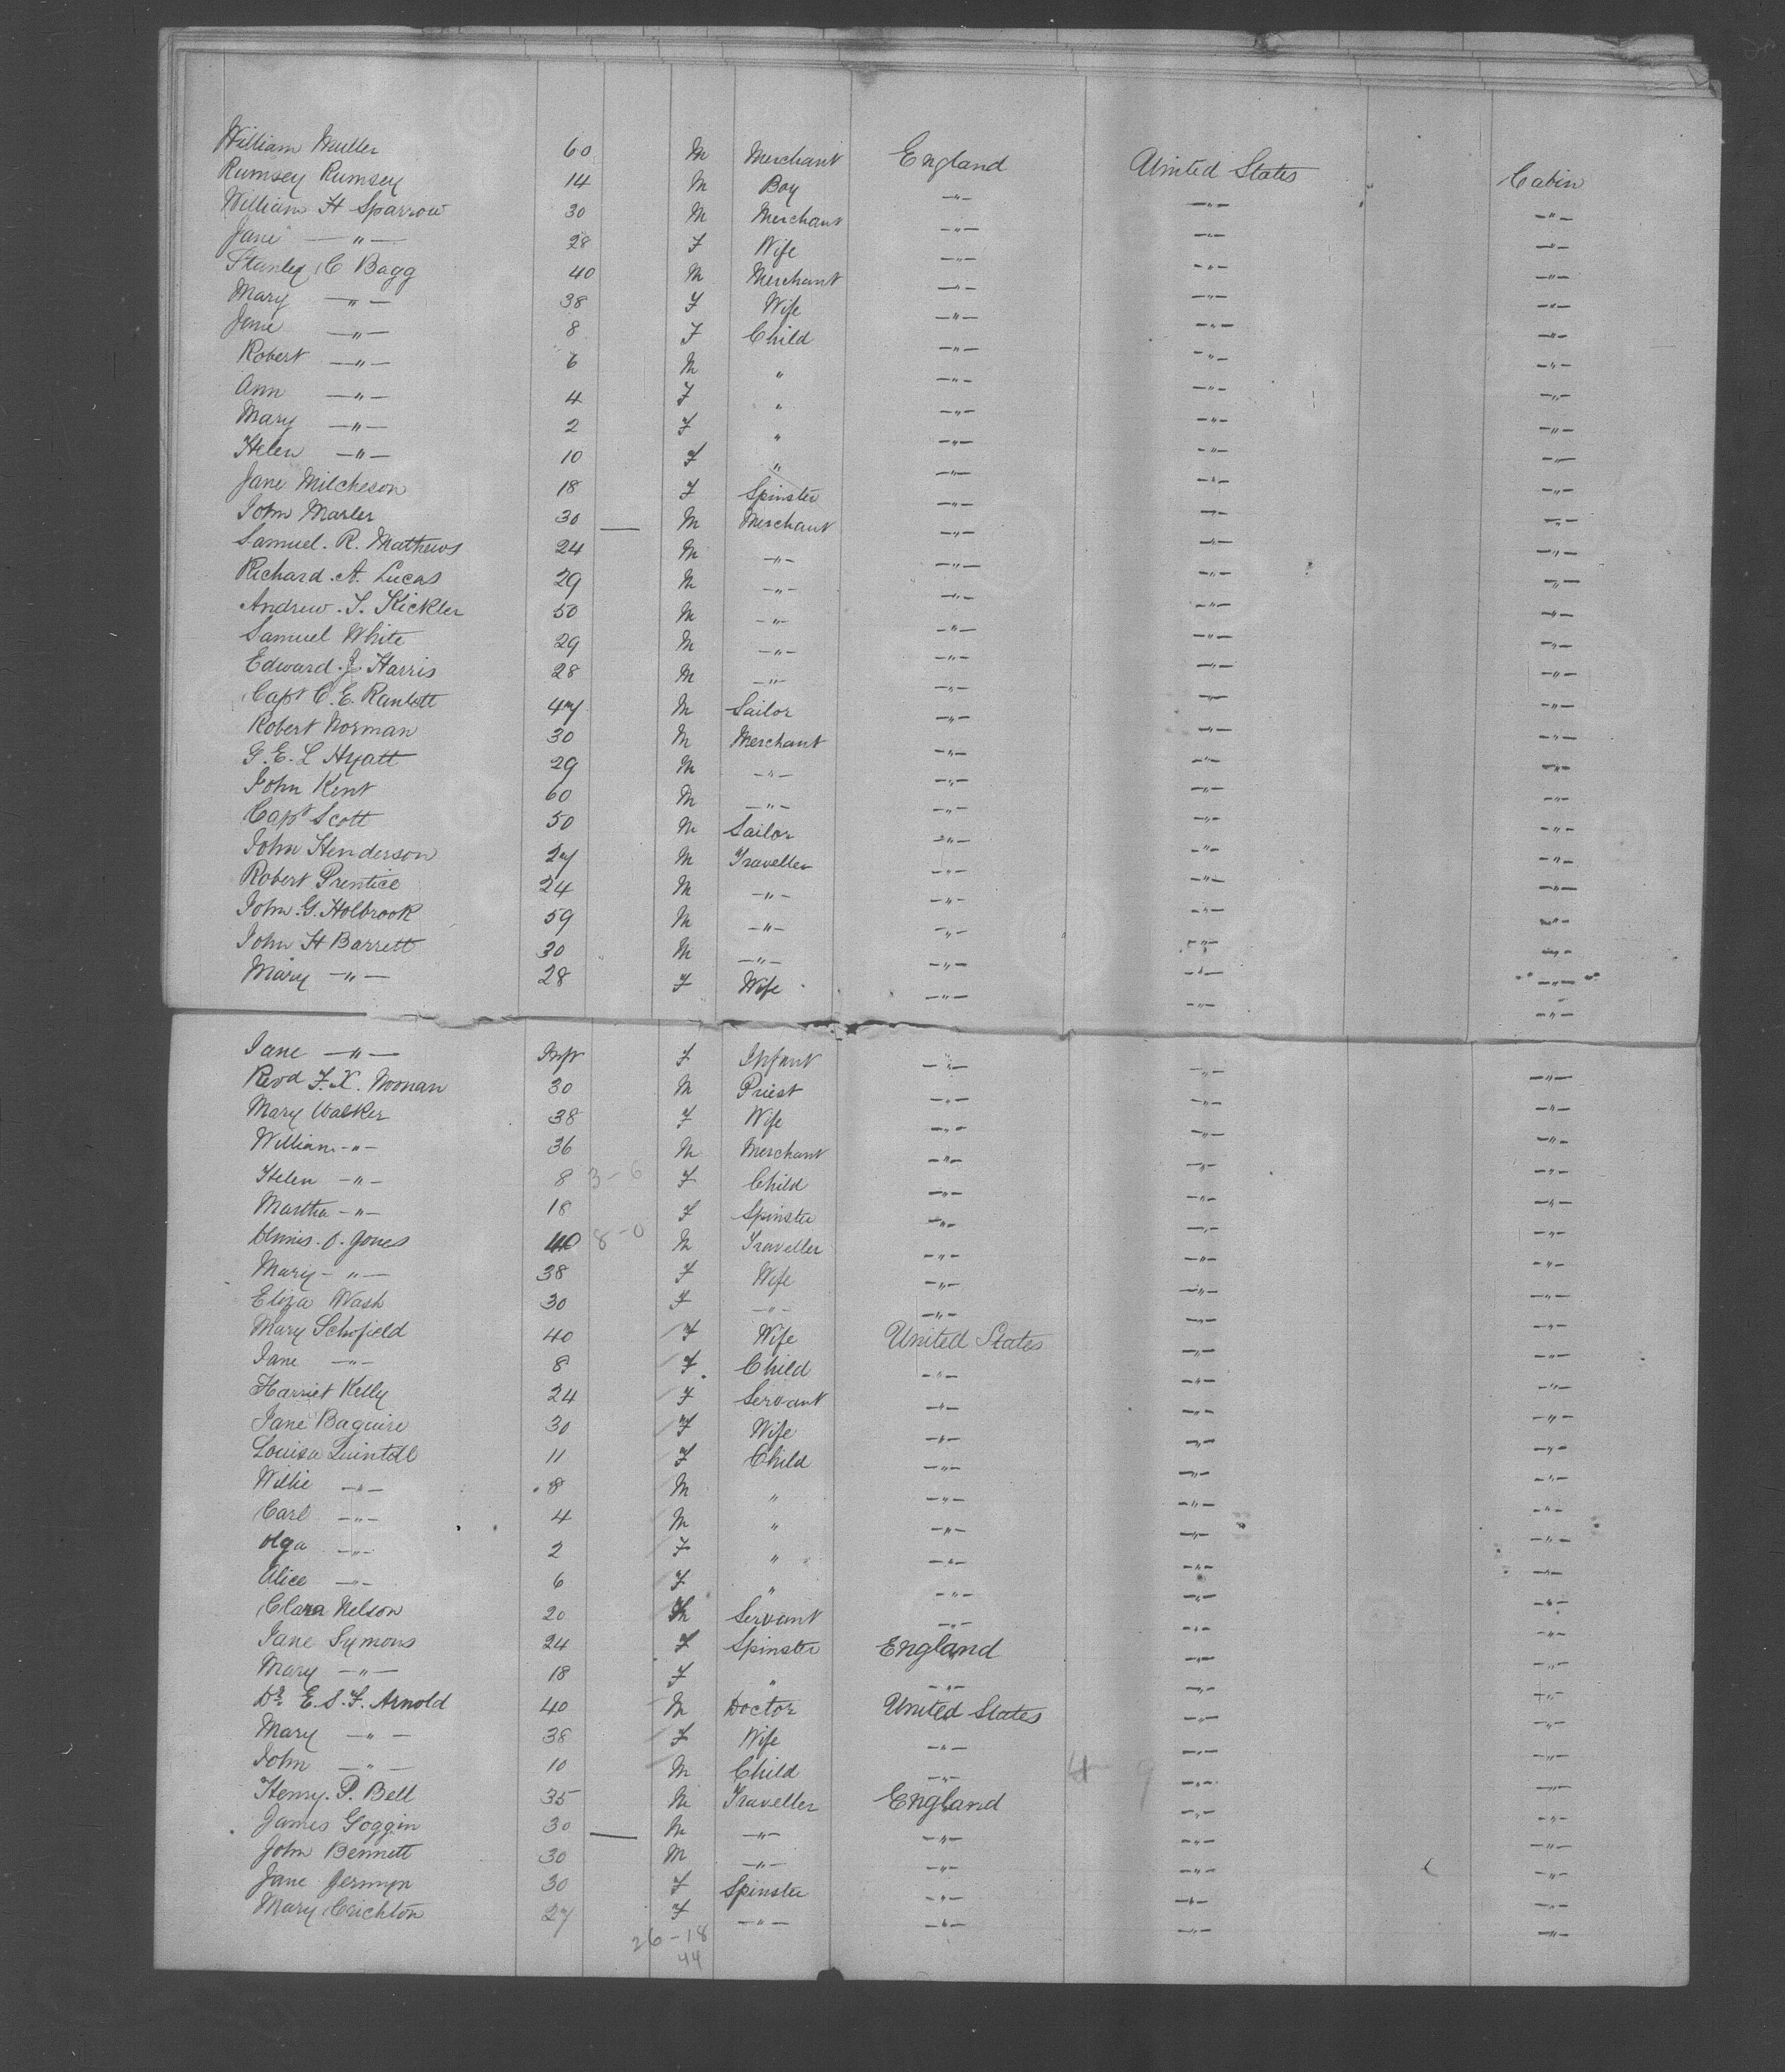 William Muller 60 M Merchant England United States Cabin
Rumsey Rumsey 14 M Boy —"— —"— —"—
William H Sparrow 30 M Merchant —"— —"— —"—
Jane —"— 28 F Wife —"— —"— —"—
Stanley C Bagg 40 M Merchant —"— —"— —"—
Mary —"— 38 F Wife —"— —"— —"—
Jane —"— 8 F Child —"— —"— —"—
Robert —"— 6 M " —"— —"— —"—
Ann —"— 4 F " —"— —"— —"—
Mary —"— 2 F " —"— —"— —"—
Helen —"— 10 F " —"— —"— —"—
Jane Mitcheson 18 F Spinster —"— —"— —"—
John Marler 30 — M Merchant —"— —"— —"—
Samuel. R. Mathews 24 M —"— —"— —"— —"—
Richard. A. Lucas 29 M —"— —"— —"— —"—
Andrew. S. Kickler 50 M —"— —"— —"— —"—
Samuel White 29 M —"— —"— —"— —"—
Edward. J. Harris 28 M —"— —"— —"— —"—
Capt C. E. Ranlett 47 M Sailor —"— —"— —"—
Robert Norman 30 M Merchant —"— —"— —"—
G. E. L Hyatt 29 M —"— —"— —"— —"—
John Kent 60 M —"— —"— —"— —"—
Capt Scott 50 M Sailor —"— —"— —"—
John Henderson 27 M Traveller —"— —"— —"—
Robert Prentice 24 M —"— —"— —"— —"—
John. G. Holbrook 59 M —"— —"— —"— —"—
John H Barrett 30 M —"— —"— —"— —"—
Mary —"— 28 F Wife —"— —"— —"—
Jane —"— Inft F Infant —"— —"— —"—
Revd F. X. Noonan 30 M Priest —"— —"— —"—
Mary Walker 38 F Wife —"— —"— —"—
William —"— 36 M Merchant —"— —"— —"—
Helen —"— 8 3-6 F Child —"— —"— —"—
Martha —"— 18 F Spinster —"— —"— —"—
Dennis. O. Jones 40 8-0 M Traveller —"— —"— —"—
Mary —"— 38 F Wife —"— —"— —"—
Eliza Wash 30 F —"— —"— —"— —"—
Mary Schofield 40 F Wife United States —"— —"—
Jane —"— 8 F Child —"— —"— —"—
Harriet Kelly 24 F Servant —"— —"— —"—
Jane Baguire 30 F Wife —"— —"— —"—
Louisa 11 F Child —"— —"— —"—
Willie —"— 8 M " —"— —"— —"—
Carl —"— 4 M " —"— —"— —"—
Olga —"— 2 F " —"— —"— —"—
Alice —"— 6 F " —"— —"— —"—
Clara Nelson 20 Servant —"— —"— —"—
Jane Symons 24 F Spinster England —"— —"—
Mary —"— 18 F " —"— —"— —"—
Dr. E. S. F. Arnold 40 M Doctor United States —"— —"—
Mary —"— 38 F Wife —"— —"— —"—
John —"— 10 M Child —"— 4 9 —"— —"—
Henry. P. Bell 35 M Traveller England —"— —"—
James Goggin 30 — M —"— —"— —"— —"—
John Bennett 30 M —"— —"— —"— —"—
Jane Jermyn 30 F Spinster —"— —"— —"—
Mary Crichton 27 F —"— —"— —"— —"—
26-18
44